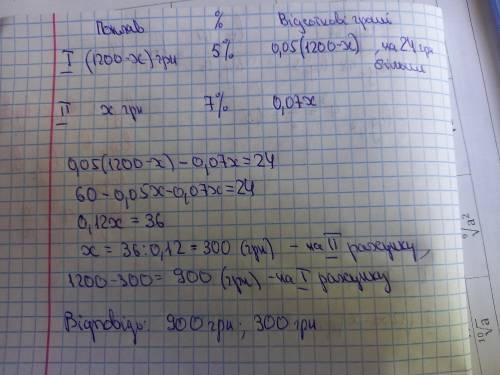 Поклав % Відсоткові гроші
I (1200-x) грн 5% 0,05(1200-x), на 24 грн більше
II x грн 7% 0,07x
0,05(1200-x) - 0,07x = 24
60 - 0,05x - 0,07x = 24
0,12x = 36
x = 36 : 0,12 = 300 (грн) - на II рахунку,
1200 - 300 = 900 (грн) - на I рахунку
Відповідь: 900 грн; 300 грн
a²
10√a